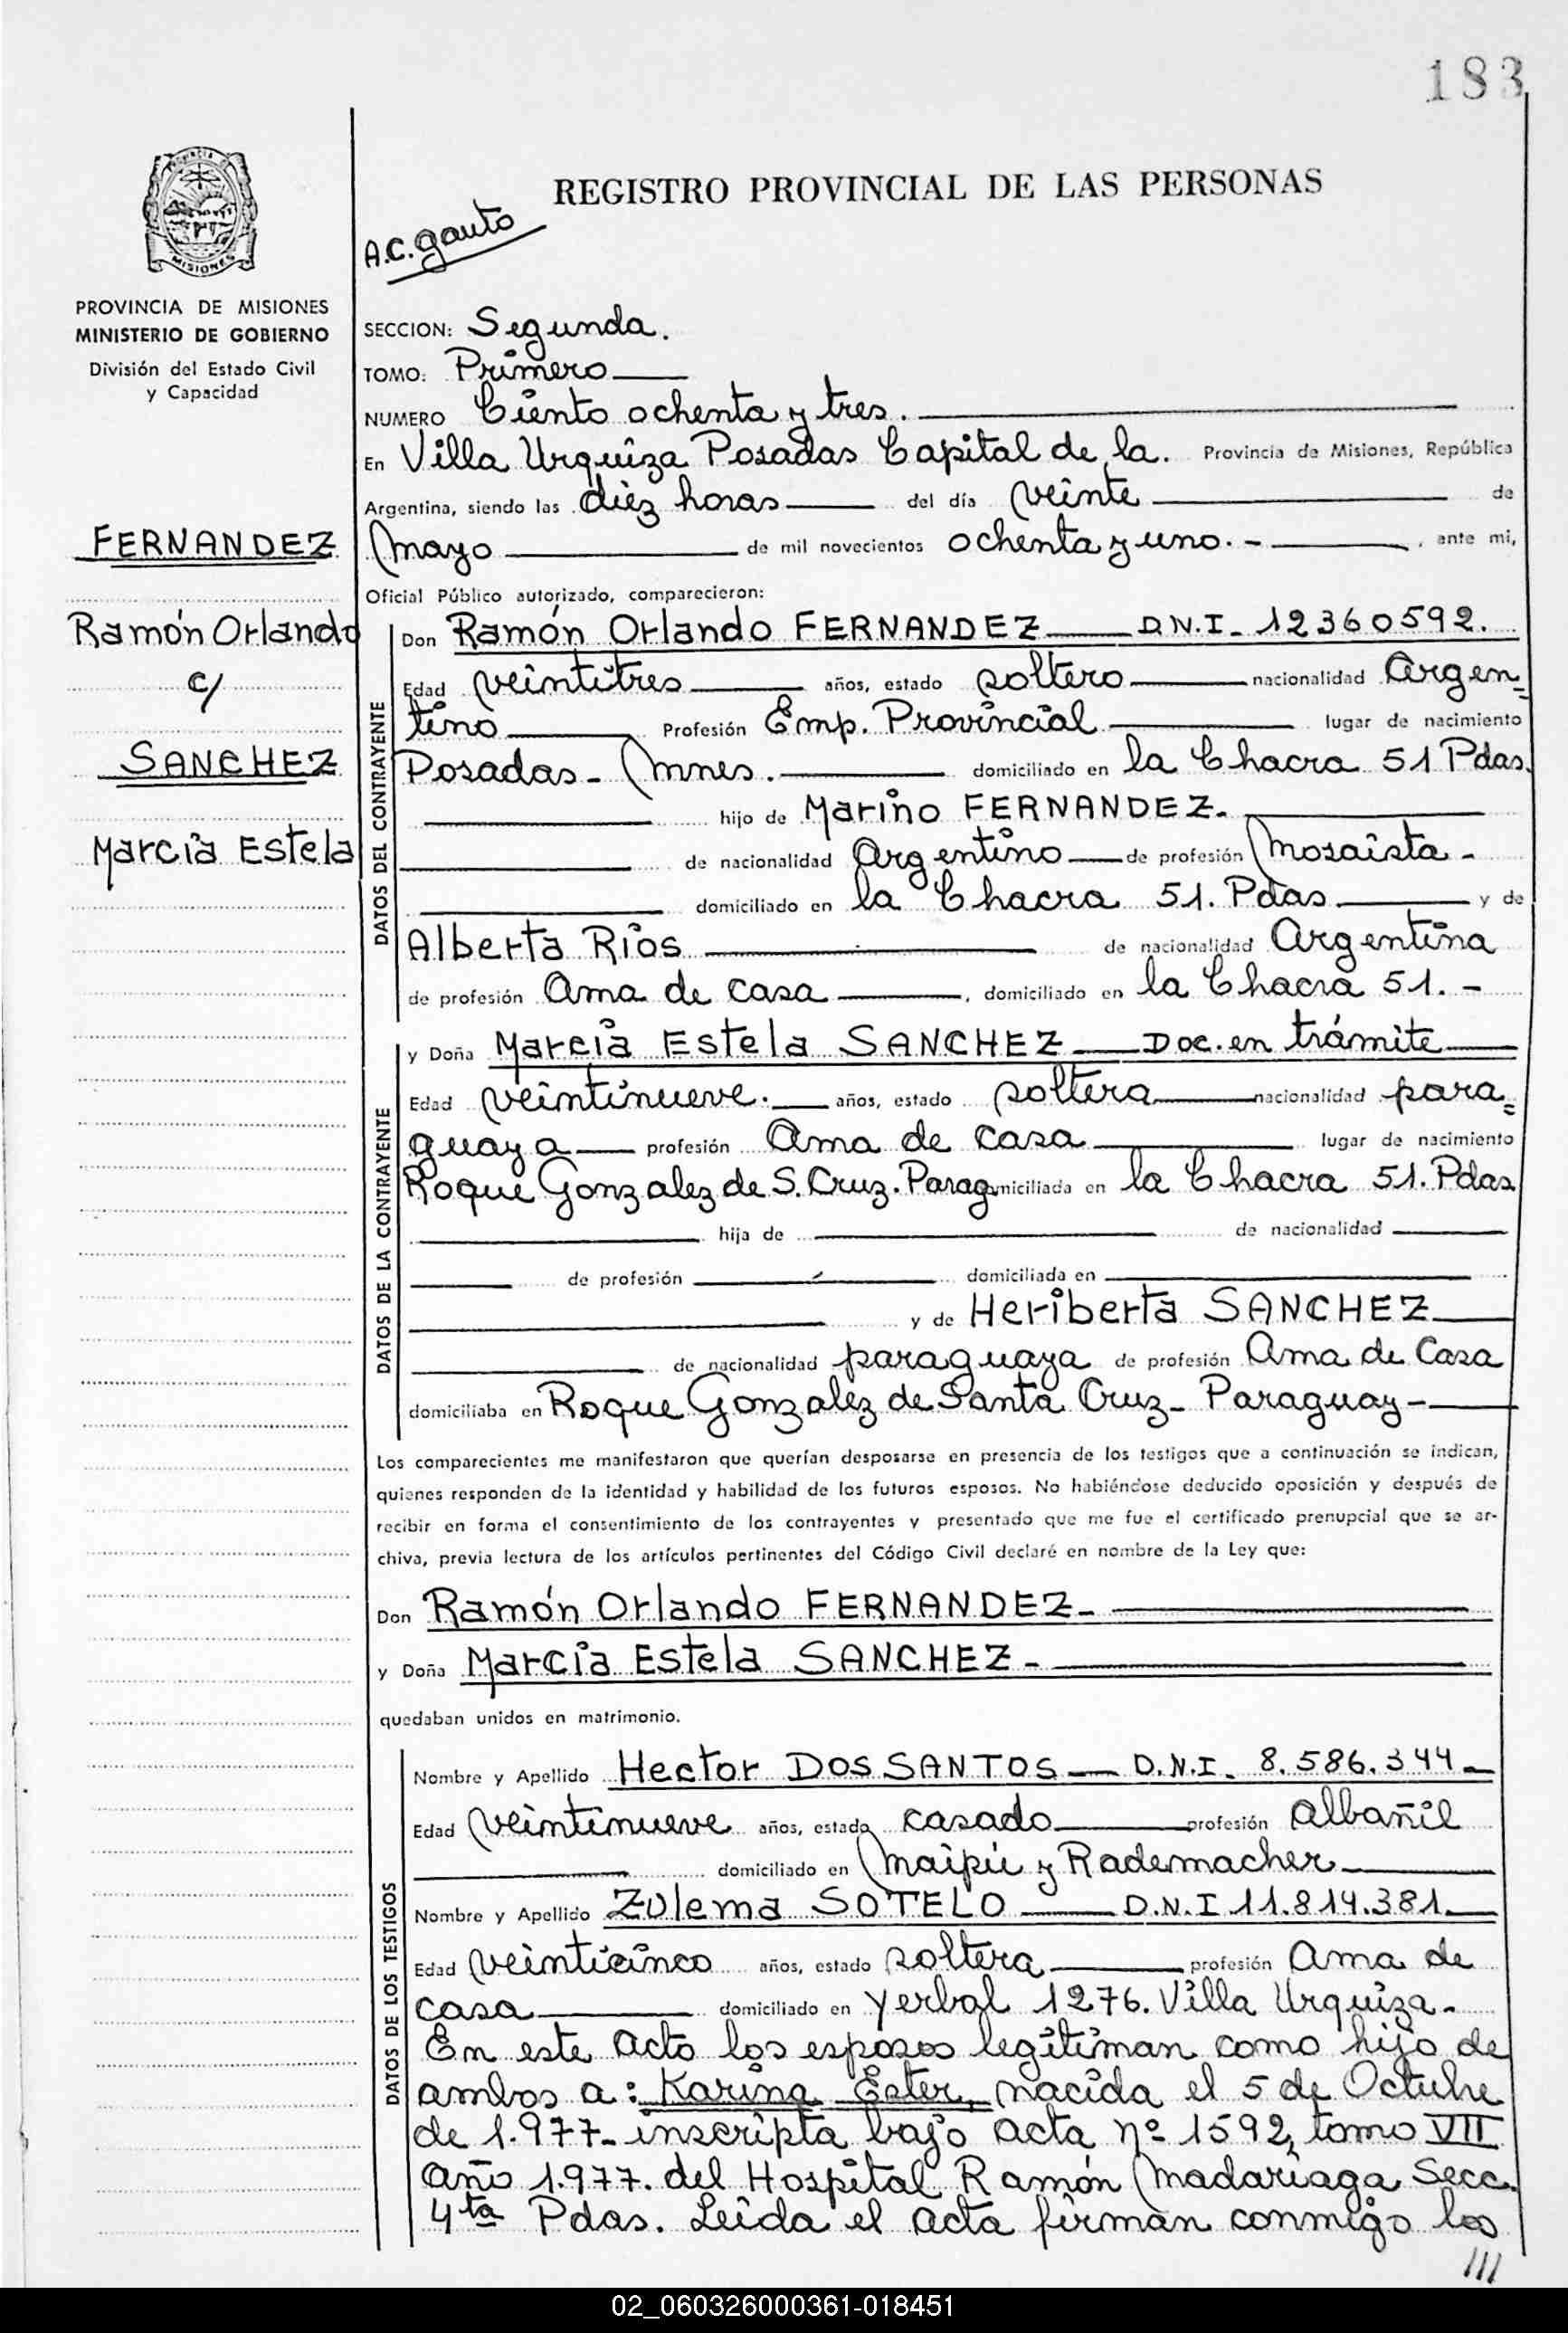 183
REGISTRO PROVINCIAL DE LAS PERSONAS
A.C. Gauto
PROVINCIA DE MISIONES
PROVINCIA DE MISIONES
MINISTERIO DE GOBIERNO
División del Estado Civil
y Capacidad
FERNANDEZ
Ramón Orlando
c/
SANCHEZ
Marcia Estela
SECCION: Segunda.
TOMO: Primero
NUMERO Ciento ochenta y tres.
En Villa Urquiza Posadas Capital de la. Provincia de Misiones, República
Argentina, siendo las diez horas del día veinte de
mayo de mil novecientos ochenta y uno. - , ante mi,
Oficial Público autorizado, comparecieron:
DATOS DEL CONTRAYENTE
Don Ramón Orlando FERNANDEZ D.N.I. 12360592.
Edad veintitres años, estado soltero nacionalidad Argen=
tino Profesión Emp. Provincial lugar de nacimiento
Posadas - Mnes. domiciliado en la Chacra 51 Pdas.
hijo de Marino FERNANDEZ.
de nacionalidad Argentino de profesión Mosaista -
domiciliado en la Chacra 51. Pdas y de
Alberta Rios de nacionalidad Argentina
de profesión Ama de casa , domiciliado en la Chacra 51. -
DATOS DE LA CONTRAYENTE
y Doña Marcia Estela SANCHEZ Doc. en trámite
Edad veintinueve. años, estado soltera nacionalidad para=
guaya profesión Ama de casa lugar de nacimiento
Roque Gonzalez de S. Cruz. Parag. miciliada en la Chacra 51. Pdas
hija de de nacionalidad
de profesión domiciliada en
y de Heriberta SANCHEZ
de nacionalidad paraguaya de profesión Ama de Casa
domiciliaba en Roque Gonzalez de Santa Cruz - Paraguay -
Los comparecientes me manifestaron que querían desposarse en presencia de los testigos que a continuación se indican,
quienes responden de la identidad y habilidad de los futuros esposos. No habiéndose deducido oposición y después de
recibir en forma el consentimiento de los contrayentes y presentado que me fue el certificado prenupcial que se ar-
chiva, previa lectura de los artículos pertinentes del Código Civil declaré en nombre de la Ley que:
Don Ramón Orlando FERNANDEZ -
y Doña Marcia Estela SANCHEZ -
quedaban unidos en matrimonio.
DATOS DE LOS TESTIGOS
Nombre y Apellido Hector DOS SANTOS D.N.I. 8.586.344
Edad veintinueve años, estado casado profesión Albañil
domiciliado en Maipú y Rademacher
Nombre y Apellido Zulema SOTELO D.N.I 11.814.381.
Edad veinticinco años, estado soltera profesión Ama de
casa domiciliado en Yerbal 1276. Villa Urquiza -
En este acto los esposos legitiman como hijo de
ambos a: Karina Ester, nacida el 5 de Octubre
de 1.977- inscripta bajo acta nº 1592, tomo VII
año 1.977. del Hospital Ramón Madariaga Secc.
4ta Pdas. Leida el acta firman conmigo los
///
02_060326000361-018451